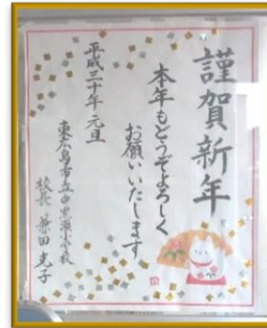 謹賀新年
本年もどうぞよろしく
お願いいたします
平成三十年元旦
東広島市立中黒瀬小学校
校長 兼田 光子